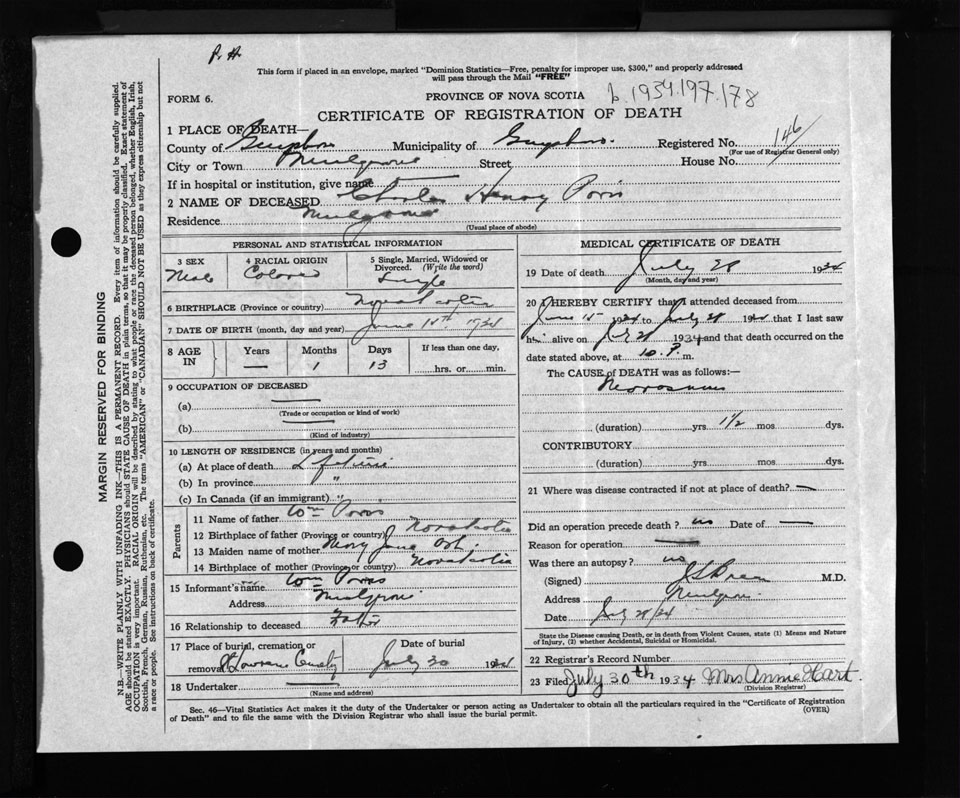 P. H.
This form if placed in an envelope, marked "Dominion Statistics—Free, penalty for improper use, $300," and properly addressed
will pass through the Mail "FREE"
FORM 6.
PROVINCE OF NOVA SCOTIA
b. 1934.197.178
CERTIFICATE OF REGISTRATION OF DEATH
1 PLACE OF DEATH—
County of Guysboro Municipality of Guysboro. Registered No. 146
(For use of Registrar General only)
City or Town Mulgrave Street House No.
If in hospital or institution, give name
2 NAME OF DECEASED Charles Henry
Residence Mulgrave
(Usual place of abode)
PERSONAL AND STATISTICAL INFORMATION
3 SEX 4 RACIAL ORIGIN 5 Single, Married, Widowed or Divorced. (Write the word)
Male Colored Single
6 BIRTHPLACE (Province or country) Nova Scotia
7 DATE OF BIRTH (month, day and year) June 15th 1934
8 AGE IN Years Months Days If less than one day,
— 1 13 hrs. or min.
9 OCCUPATION OF DECEASED
(a) —
(Trade or occupation or kind of work)
(b)
(Kind of industry)
10 LENGTH OF RESIDENCE (in years and months)
(a) At place of death Lifetime
(b) In province "
(c) In Canada (if an immigrant) "
Parents
11 Name of father Wm
12 Birthplace of father (Province or country) Nova Scotia
13 Maiden name of mother Mary Jane
14 Birthplace of mother (Province or country) Nova Scotia
15 Informant's name Wm
Address Mulgrave
16 Relationship to deceased Father
17 Place of burial, cremation or removal Date of burial
July 30 1934
18 Undertaker —
(Name and address)
MEDICAL CERTIFICATE OF DEATH
19 Date of death July 28 1934
(Month, day and year)
20 I HEREBY CERTIFY that I attended deceased from
June 15 1934 to July 28 1934 that I last saw
h alive on July 28 1934 and that death occurred on the
date stated above, at 10 P. m.
The CAUSE of DEATH was as follows:—
(duration) yrs. 1 1/2 mos. dys.
CONTRIBUTORY
(duration) yrs. mos. dys.
21 Where was disease contracted if not at place of death? —
Did an operation precede death? no Date of —
Reason for operation —
Was there an autopsy? no
(Signed) M.D.
Address Mulgrave
Date July 28/34
State the Disease causing Death, or in death from Violent Causes, state (1) Means and Nature
of Injury, (2) whether Accidental, Suicidal or Homicidal.
22 Registrar's Record Number
23 Filed July 30th 1934 Mrs Annie Hart.
(Division Registrar)
Sec. 46—Vital Statistics Act makes it the duty of the Undertaker or person acting as Undertaker to obtain all the particulars required in the "Certificate of Registration
of Death" and to file the same with the Division Registrar who shall issue the burial permit.
(OVER)
MARGIN RESERVED FOR BINDING
N.B.—WRITE PLAINLY WITH UNFADING INK—THIS IS A PERMANENT RECORD. Every item of information should be carefully supplied.
AGE should be stated EXACTLY. PHYSICIANS should STATE CAUSE OF DEATH in plain terms, so that it may be properly classified. Exact statement of
OCCUPATION is very important. RACIAL ORIGIN will be described by stating to what people or race the deceased person belonged, whether English, Irish,
Scottish, French, German, Russian, Ruthenian, etc. The terms "AMERICAN" or "CANADIAN" SHOULD NOT BE USED as they express citizenship but not
a race or people. See instructions on back of certificate.